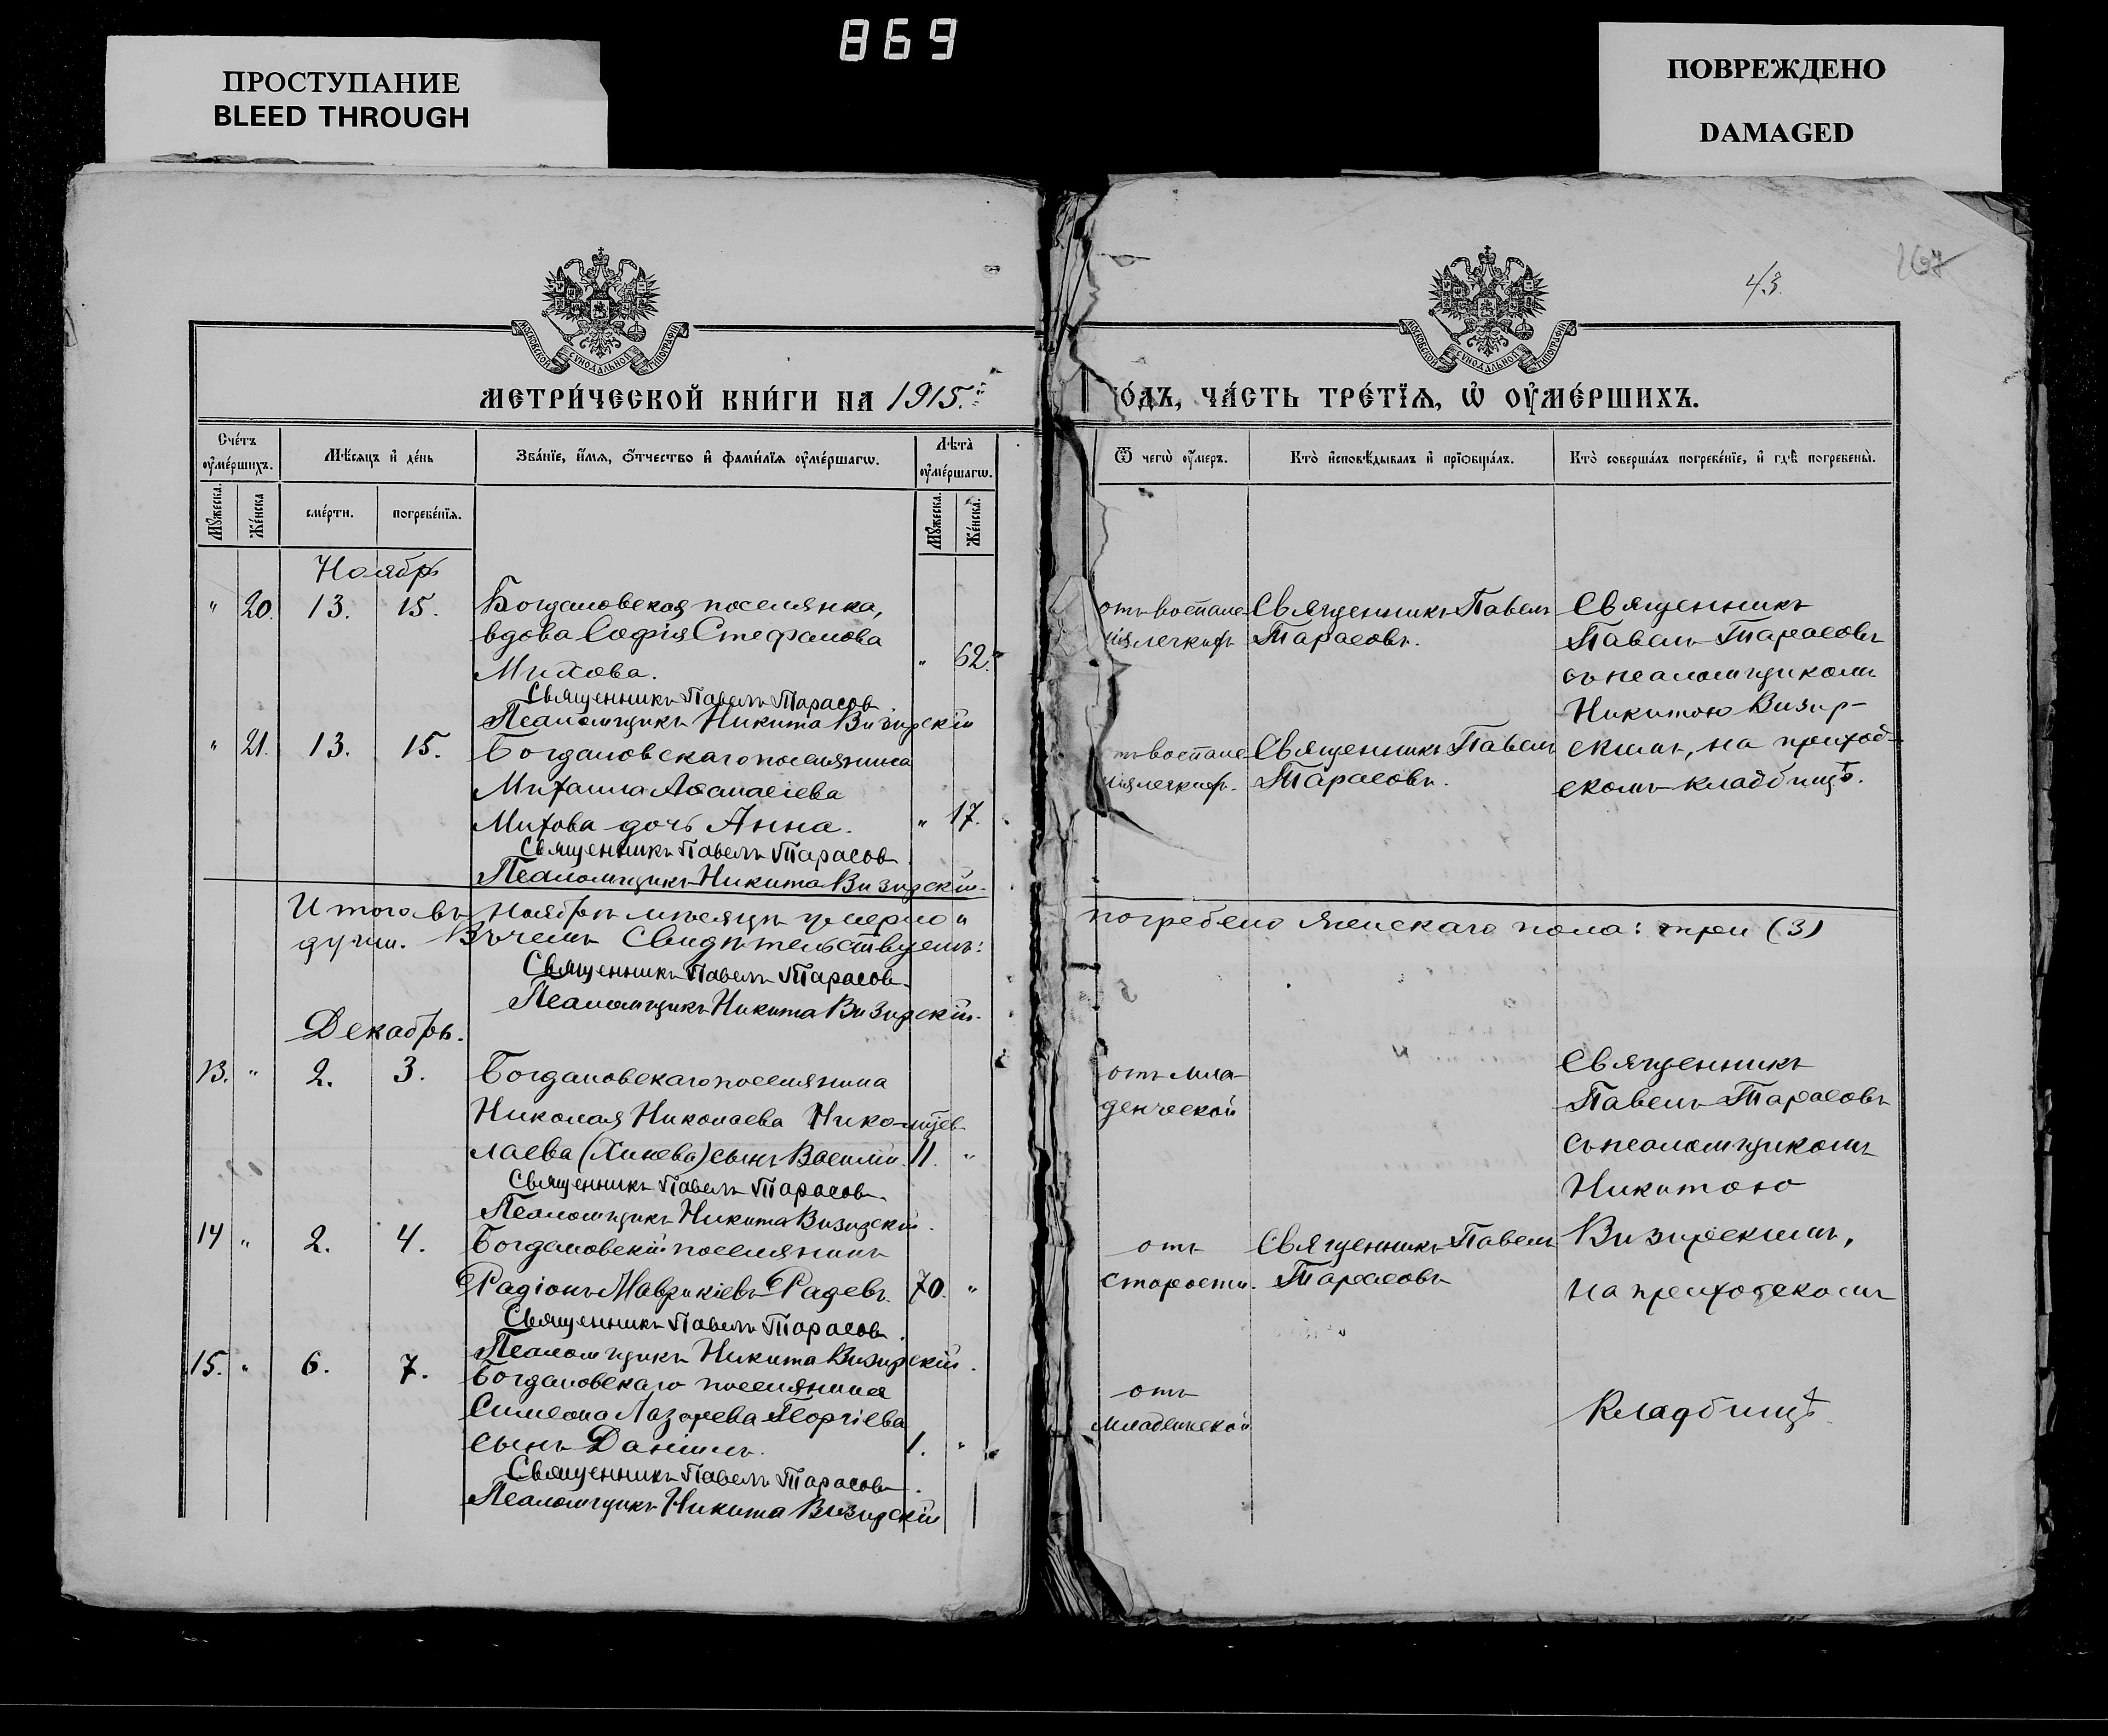 869
ПРОСТУПАНИЕ
BLEED THROUGH
ПОВРЕЖДЕНО
DAMAGED
43.
МОСКОВСКОЙ СѴНОДАЛЬНОЙ ТИПОГРАФІИ
МОСКОВСКОЙ СѴНОДАЛЬНОЙ ТИПОГРАФІИ
МЕТРИ́ЧЕСКОЙ КНИ́ГИ НА 1915.
О́ДЪ, ЧА́СТЬ ТРЕ́ТЇѦ, Ѡ҆ ОУ҆МЕ́РШИХЪ.
Сче́тъ оу҆ме́ршихъ.
Мѣ́сяцъ и҆ де́нь
Зва́нїе, и҆́мѧ, ѻ҆́тчество и҆ фами́лїѧ оу҆ме́ршагѡ.
Лѣ́та̀ оу҆ме́ршагѡ.
Ѿ чегѡ̀ оу҆́меръ.
Кто̀ и҆сповѣ́дывалъ и҆ прїѡбща́лъ.
Кто̀ соверша́лъ погребе́нїе, и҆ гдѣ̀ погребены̀.
Мꙋ́жеска.
Же́нска
сме́рти.
погребе́нїѧ.
Мꙋ́жеска.
Же́нска.
Ноябрь
" 20. 13. 15. Богдановская поселянка,
вдова Софія Стефанова
Михова. " 62.
Священникъ Павелъ Тарасовъ.
Псаломщикъ Никита Визирскій
отъ воспале
нія легкихъ
Священникъ Павелъ
Тарасовъ.
Священникъ
Павелъ Тарасовъ
съ псаломщикомъ
Никитою Визир-
скимъ, на приход-
скомъ кладбищѣ.
" 21. 13. 15. Богдановскаго поселянина
Михаила Аѳанасіева
Михова дочь Анна. " 17.
Священникъ Павелъ Тарасовъ.
Псаломщикъ Никита Визирскій.
тъ воспале
нія легкихъ.
Священникъ Павелъ
Тарасовъ.
Итого въ Ноябрѣ мѣсяцѣ умерло и погребено женскаго пола: три (3)
души. Въ чемъ свидѣтельствуемъ:
Священникъ Павелъ Тарасовъ.
Псаломщикъ Никита Визирскій.
Декабрь.
13. " 2. 3. Богдановскаго поселянина
Николая Николаева Нико-
лаева (Хинева) сынъ Василій. 11. "
Священникъ Павелъ Тарасовъ.
Псаломщикъ Никита Визирскій.
отъ мла-
денческой
Священникъ
Павелъ Тарасовъ
съ псаломщикомъ
Никитою
Визирскимъ,
на приходскомъ
Кладбищѣ.
14 " 2. 4. Богдановскій поселянинъ
Радіонъ Маврикіевъ Радевъ. 70. "
Священникъ Павелъ Тарасовъ.
Псаломщикъ Никита Визирскій.
отъ
старости.
Священникъ Павелъ
Тарасовъ
15. " 6. 7. Богдановскаго поселянина
Симеона Лазарева Георгіева
сынъ Даніилъ. 1. "
Священникъ Павелъ Тарасовъ.
Псаломщикъ Никита Визирскій
отъ
младенческой